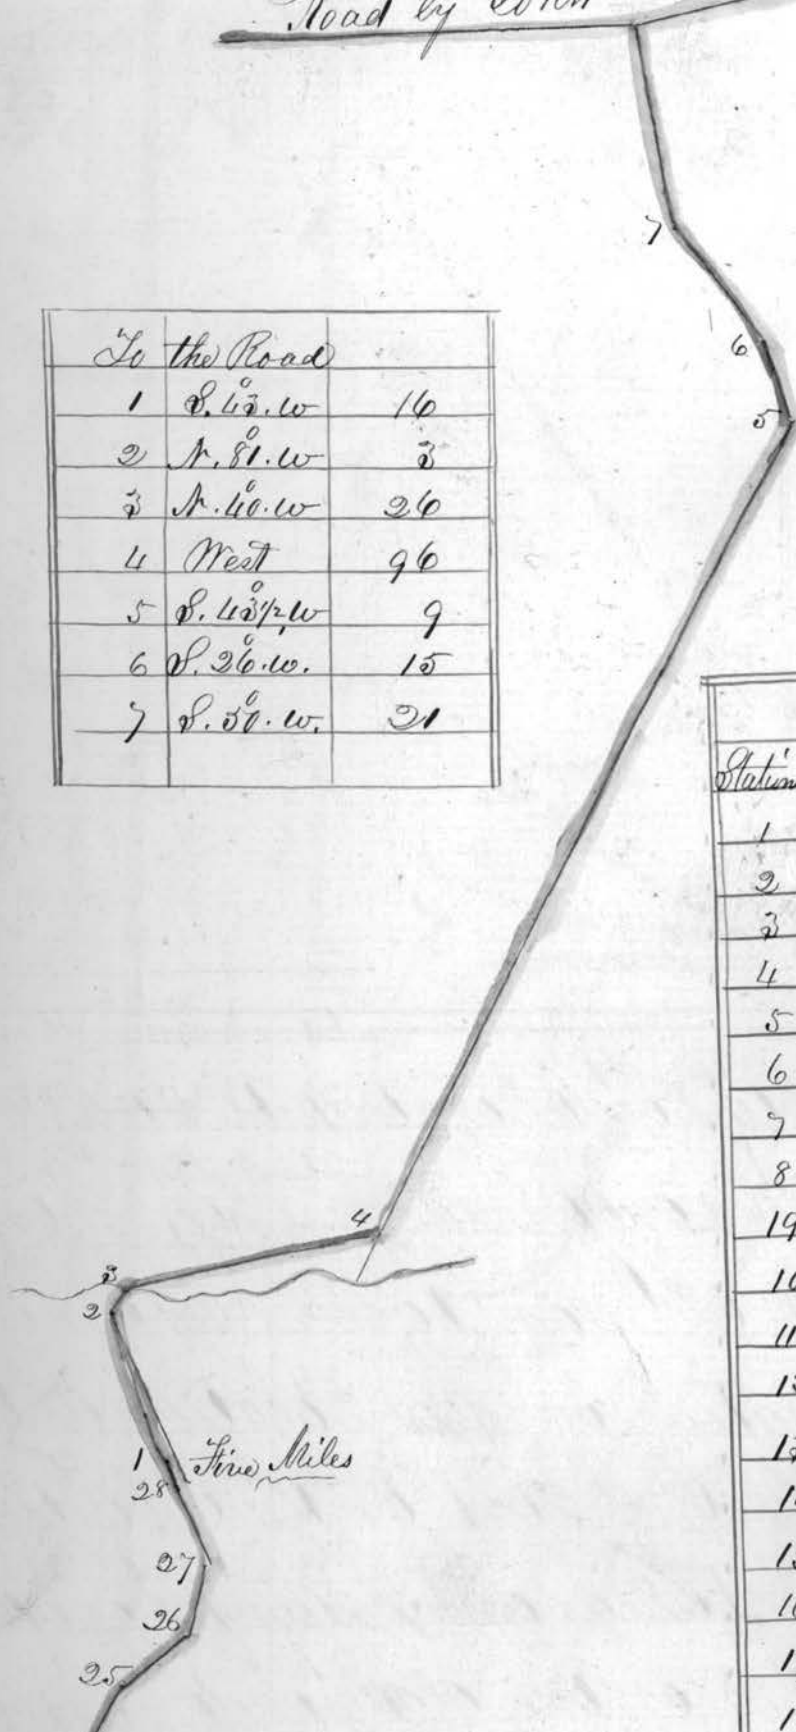 Road by
7
6
5
To the Road
1 S. 43°. W 16
2 N. 81°. W 3
3 N. 40°. W 26
4 West 96
5 S. 43°1/2 W 9
6 S. 26°. W. 15
7 S. 50°. W. 21
Station
1
2
3
4
5
6
7
8
19
10
11
4
3
2
1 Five Miles
28
27
26
25